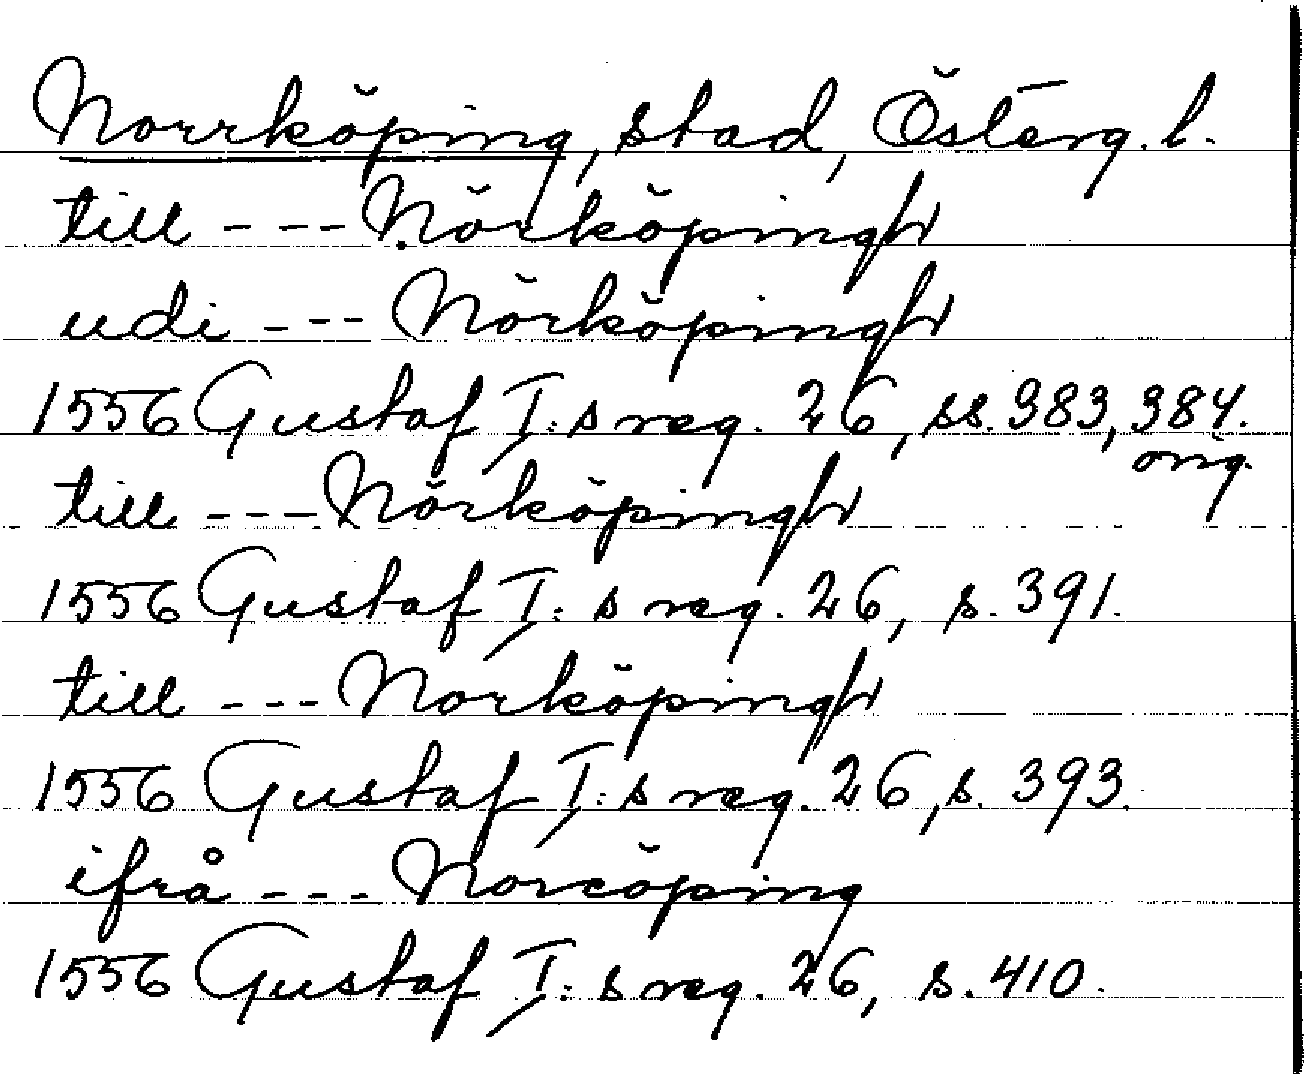 Norrköping, stad, Österg. l.
till --- Nörköpingh
udi --- Nörköpingh
1556 Gustaf I:s reg. 26, ss. 383, 384.
orig.
till --- Nörköpingh
1556 Gustaf I:s reg. 26, s. 391.
till --- Norköpingh
1556 Gustaf I:s reg. 26, s. 393.
ifrå --- Norcöping
1556 Gustaf I:s reg. 26, s. 410.